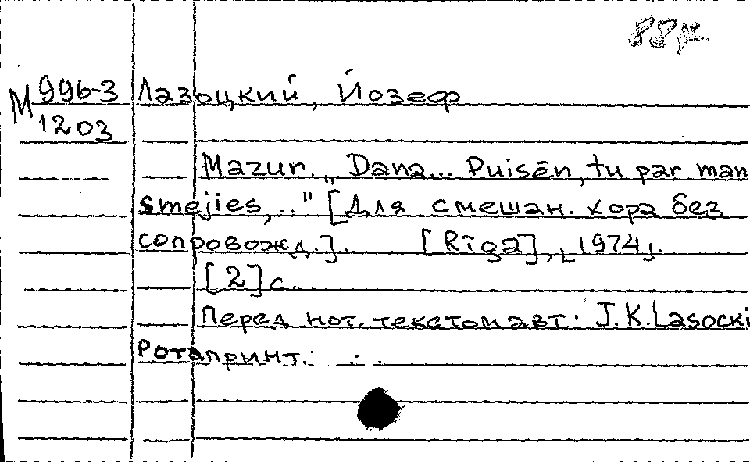 88к
М 996-3 Лазоцкий, Йозеф
1203
Mazur. „Dana... Puisēn, tu par man
smejies,.." [Для смешан. хора без
сопровожд.]. [Rīga], [1974].
[2] с.
Перед нот. текстом авт. J.K. Lasocki
Ротапринт.